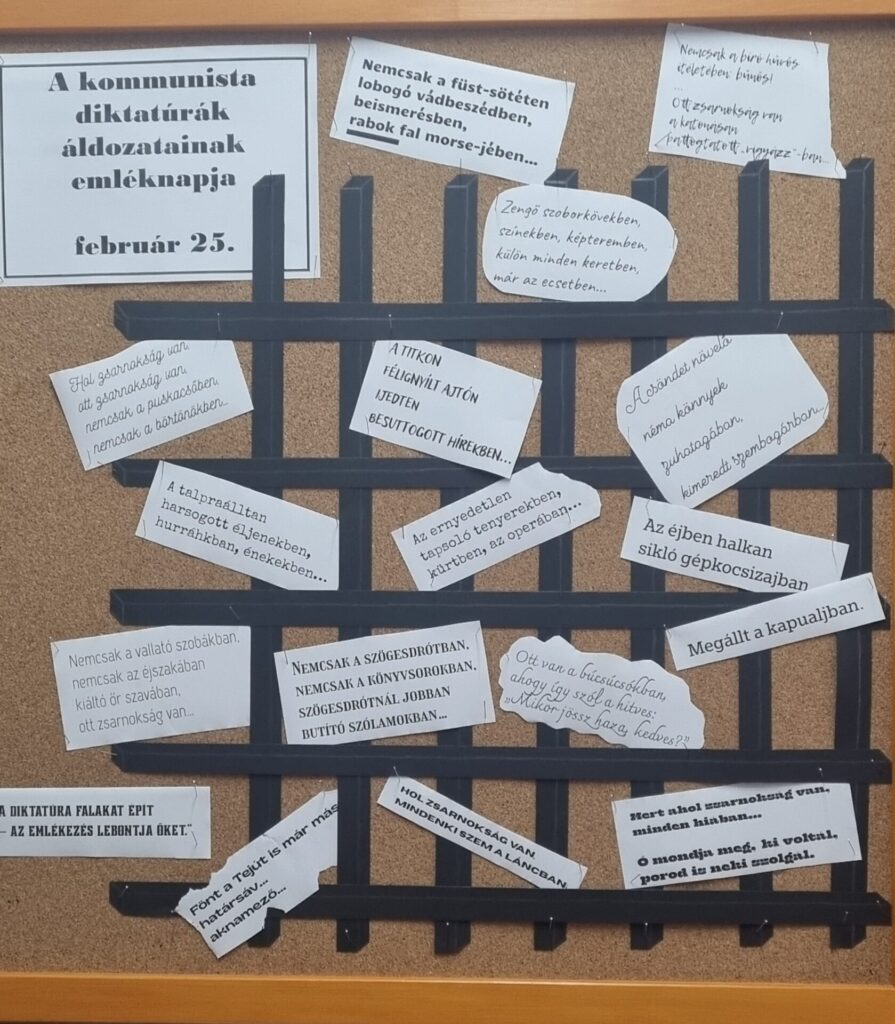 A kommunista
diktatúrák
áldozatainak
emléknapja
február 25.
Nemcsak a füst-sötéten
lobogó vádbeszédben,
beismerésben,
rabok fal morse-jében...
Nemcsak a bíró hűvös
ítéletében: bűnös!
...
Ott zsarnokság van
a katonásan
pattogtatott „vigyázz"-ban...
Zengő szoborkövekben,
színekben, képteremben,
külön minden keretben,
már az ecsetben...
Hol zsarnokság van,
ott zsarnokság van,
nemcsak a puskacsőben,
nemcsak a börtönökben...
A TITKON
FÉLIGNYÍLT AJTÓN
IJEDTEN
BESUTTOGOTT HÍREKBEN...
A csöndet növelő
néma könnyek
zuhatagában,
kimeredt szembogárban...
A talpraálltan
harsogott éljenekben,
hurráhkban, énekekben...
Az ernyedetlen
tapsoló tenyerekben,
kürtben, az operában...
Az éjben halkan
sikló gépkocsizajban
Megállt a kapualjban.
Nemcsak a vallató szobákban,
nemcsak az éjszakában
kiáltó őr szavában,
ott zsarnokság van...
NEMCSAK A SZÖGESDRÓTBAN,
NEMCSAK A KÖNYVSOROKBAN,
SZÖGESDRÓTNÁL JOBBAN
BUTÍTÓ SZÓLAMOKBAN...
Ott van a búcsúcsókban,
ahogy így szól a hitves:
„Mikor jössz haza, kedves?"
A DIKTATÚRA FALAKAT ÉPÍT
– AZ EMLÉKEZÉS LEBONTJA ŐKET."
Fönt a Tejút is már más
határsáv...
aknamező...
HOL ZSARNOKSÁG VAN,
MINDENKI SZEM A LÁNCBAN
Mert ahol zsarnokság van,
minden hiában...
Ő mondja meg, ki voltál,
porod is neki szolgál.